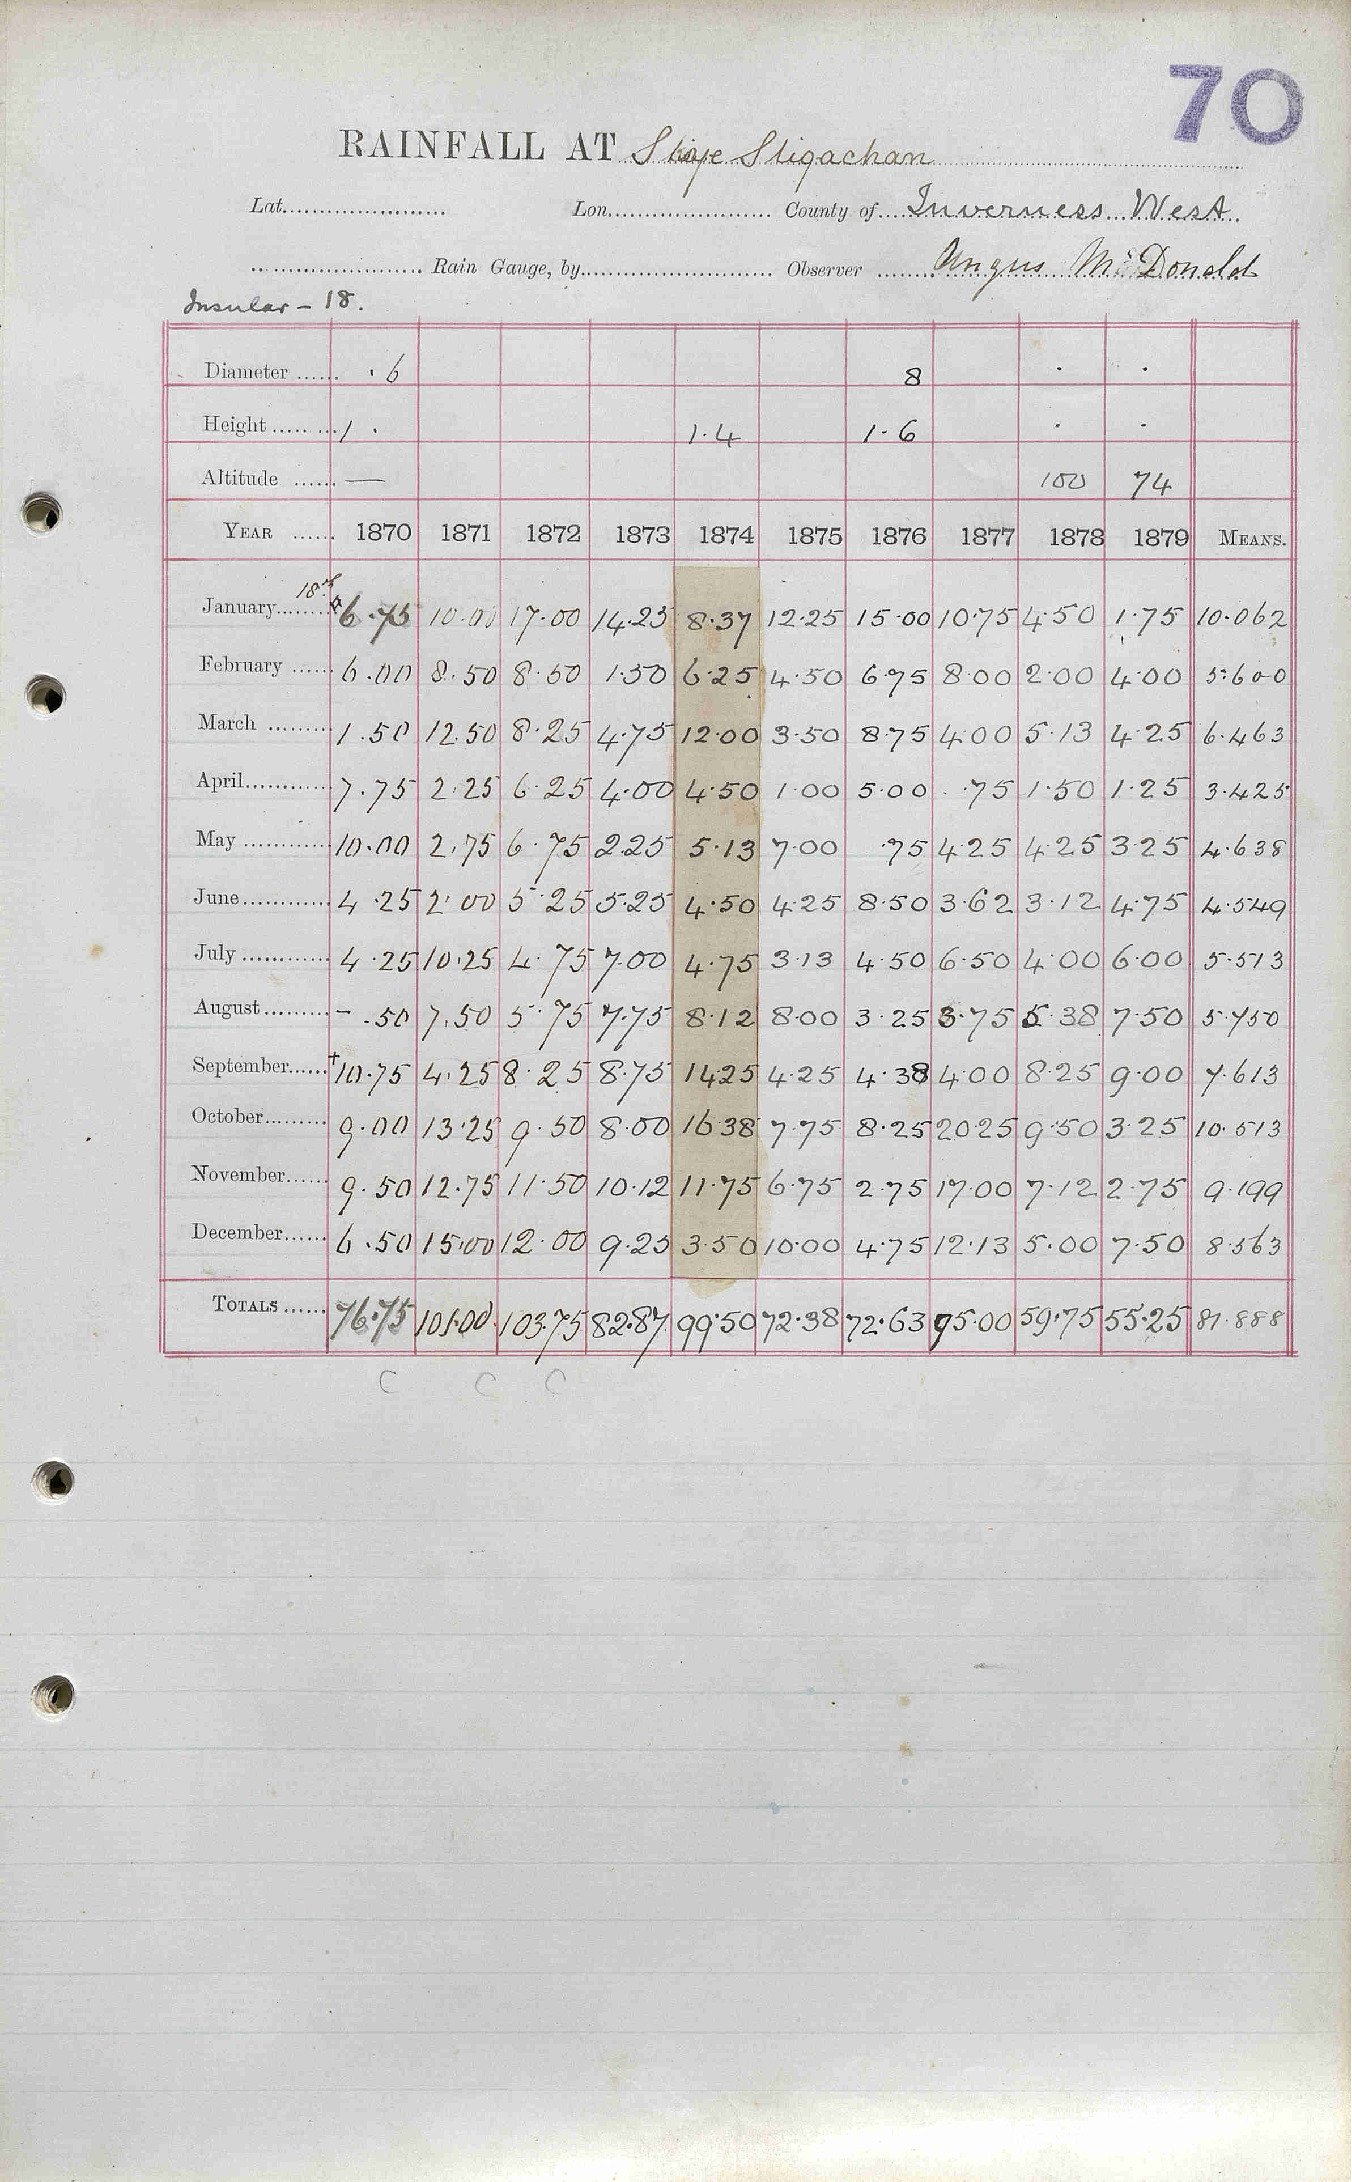 70
RAINFALL AT Skye Sligachan
Lat. Lon. County of Inverness West
Rain Gauge, by Observer Angus McDonald
Insular - 18.
Diameter ...... · 6 8 · ·
Height ...... 1 · 1·4 1·6 · ·
Altitude ...... — 100 74
YEAR ...... 1870 1871 1872 1873 1874 1875 1876 1877 1878 1879 MEANS.
January 6.75 10.00 17.00 14.25 8.37 12.25 15.00 10.75 4.50 1.75 10.062
February 6.00 8.50 8.50 1.50 6.25 4.50 6.75 8.00 2.00 4.00 5.600
March 1.50 12.50 8.25 4.75 12.00 3.50 8.75 4.00 5.13 4.25 6.463
April 7.75 2.25 6.25 4.00 4.50 1.00 5.00 .75 1.50 1.25 3.425
May 10.00 2.75 6.75 2.25 5.13 7.00 .75 4.25 4.25 3.25 4.638
June 4.25 2.00 5.25 5.25 4.50 4.25 8.50 3.62 3.12 4.75 4.549
July 4.25 10.25 4.75 7.00 4.75 3.13 4.50 6.50 4.00 6.00 5.513
August – .50 7.50 5.75 7.75 8.12 8.00 3.25 3.75 5.38 7.50 5.750
September +10.75 4.25 8.25 8.75 14.25 4.25 4.38 4.00 8.25 9.00 7.613
October 9.00 13.25 9.50 8.00 16.38 7.75 8.25 20.25 9.50 3.25 10.513
November 9.50 12.75 11.50 10.12 11.75 6.75 2.75 17.00 7.12 2.75 9.199
December 6.50 15.00 12.00 9.25 3.50 10.00 4.75 12.13 5.00 7.50 8.563
TOTALS 76.75 101.00 103.75 82.87 99.50 72.38 72.63 95.00 59.75 55.25 81.888
C C C